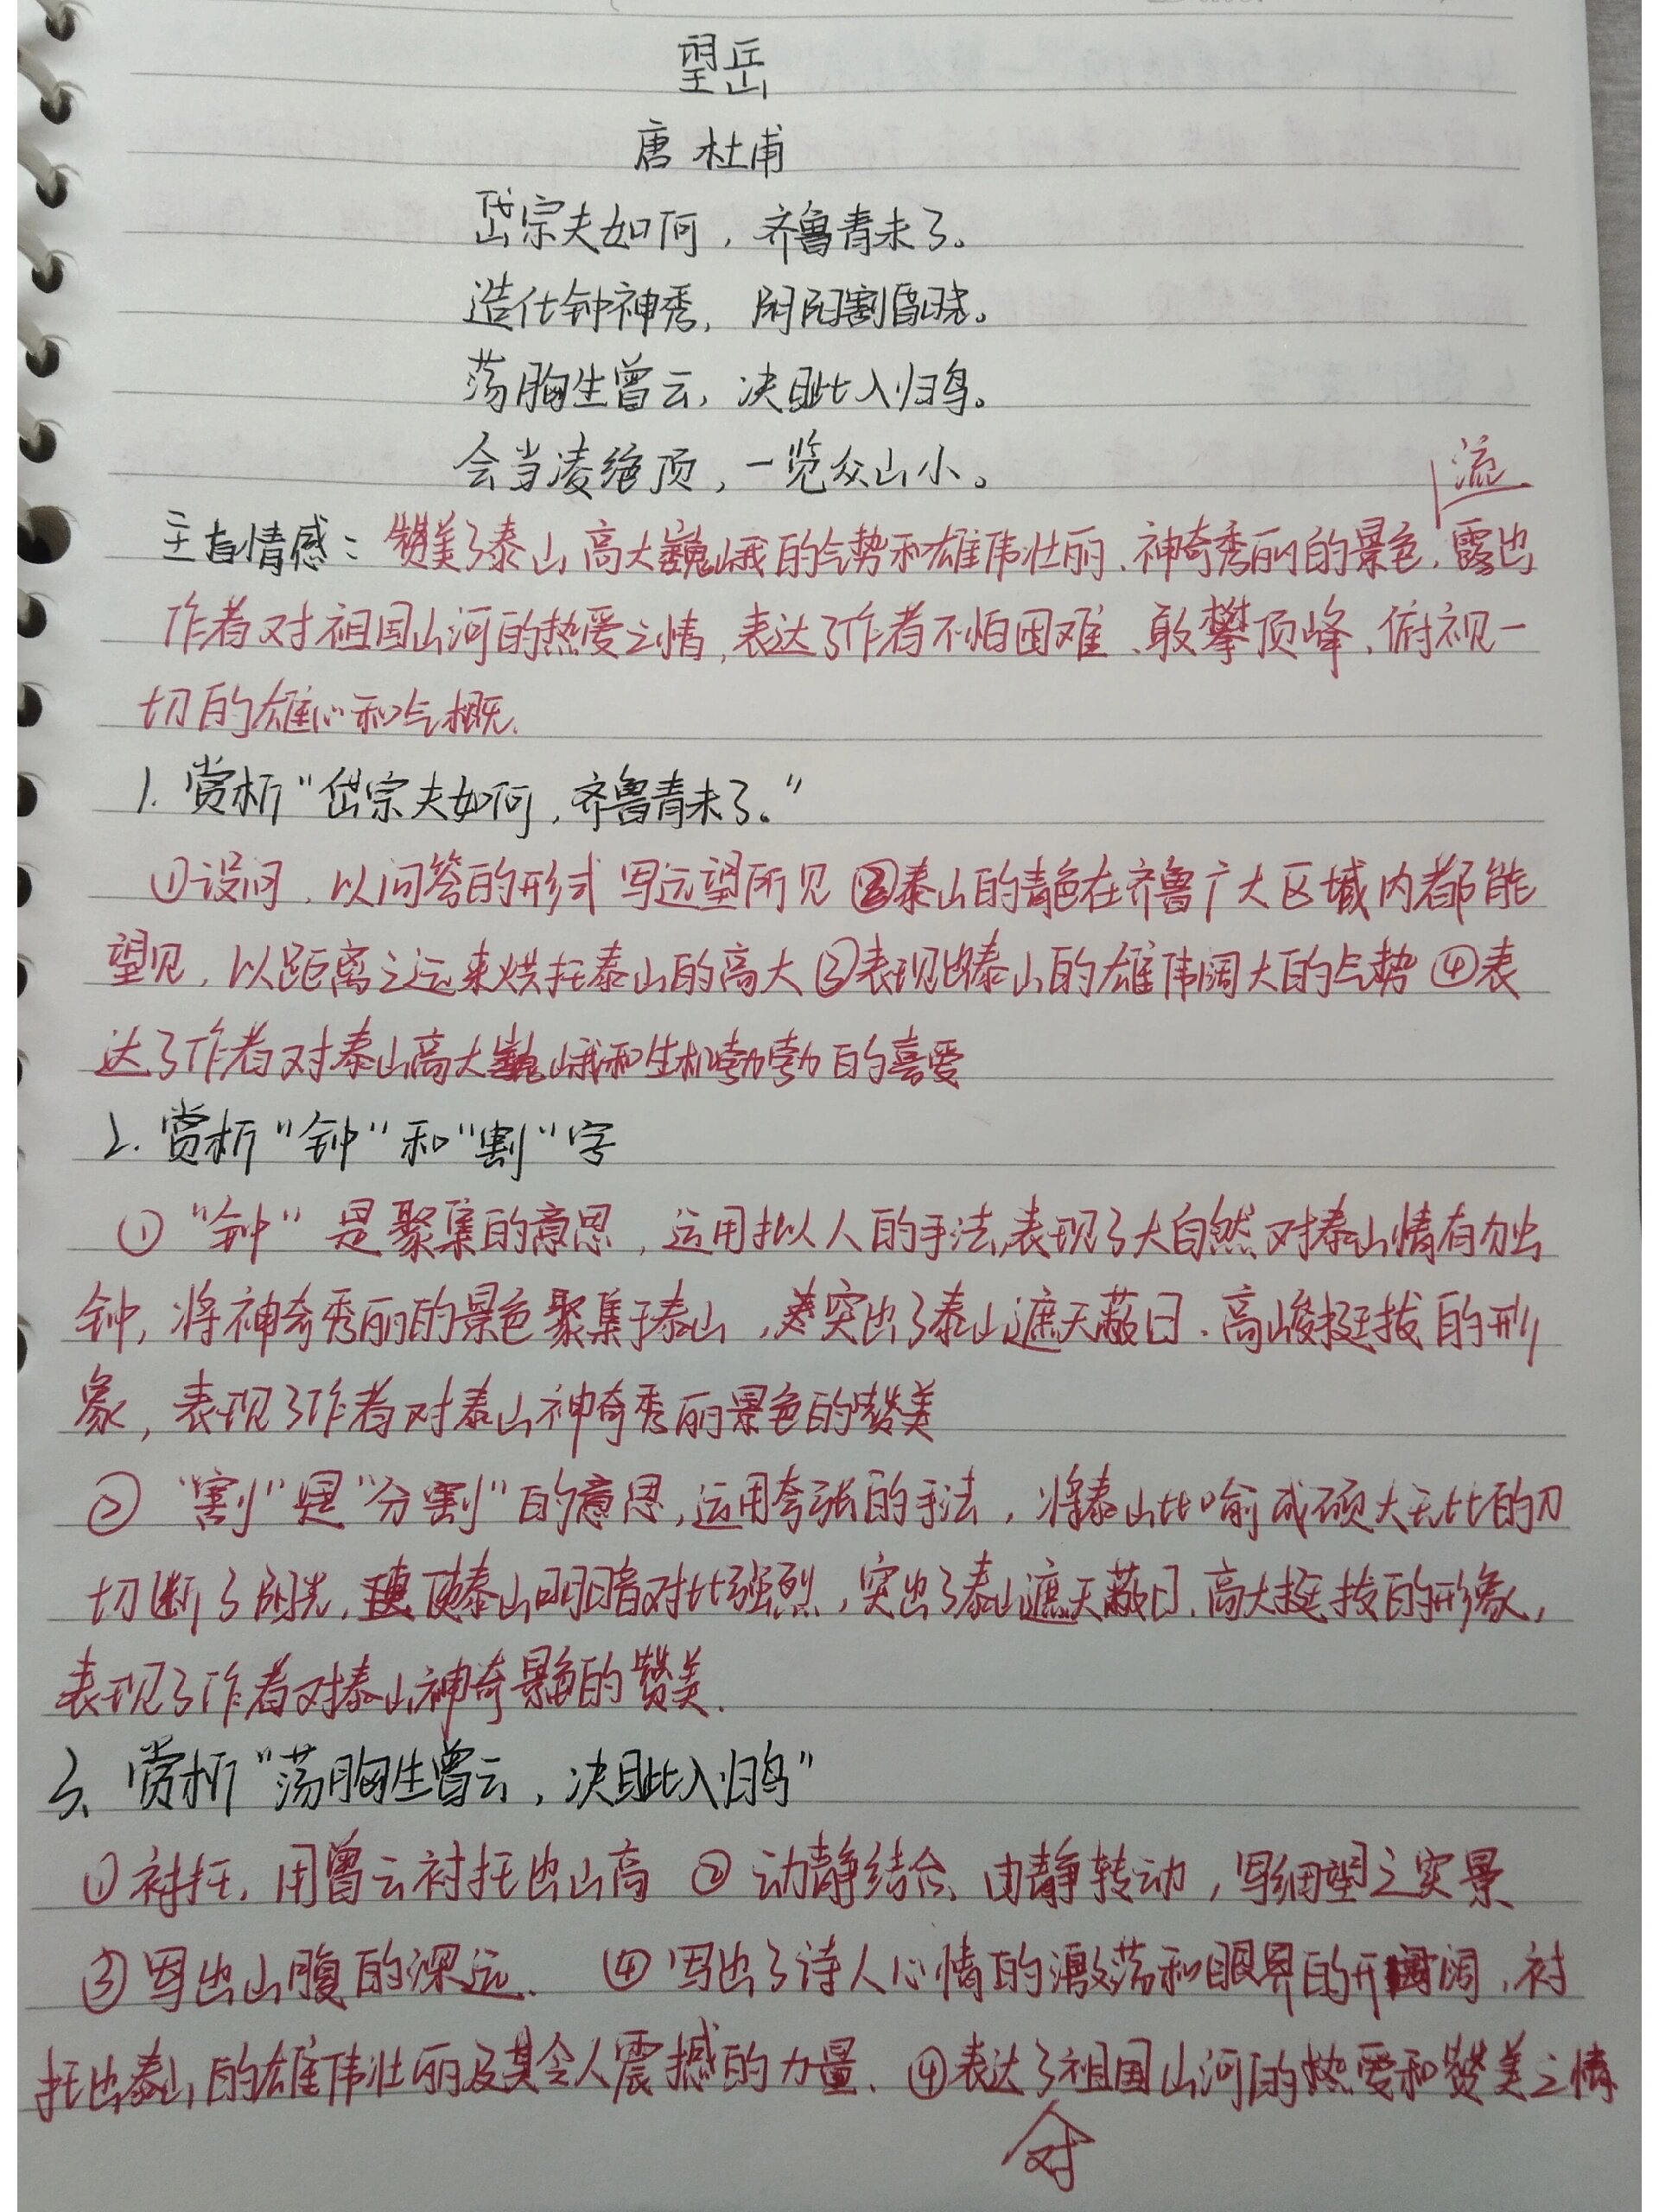 望岳
唐 杜甫
岱宗夫如何，齐鲁青未了。
造化钟神秀，阴阳割昏晓。
荡胸生曾云，决眦入归鸟。
会当凌绝顶，一览众山小。
流
主旨情感：赞美了泰山高大巍峨的气势和雄伟壮丽、神奇秀丽的景色，露出
作者对祖国山河的热爱之情，表达了作者不怕困难、敢攀顶峰、俯视一
切的雄心和气概.
1. 赏析“岱宗夫如何，齐鲁青未了。”
①设问，以问答的形式 写远望所见 ②泰山的青色在齐鲁广大区域内都能
望见，以距离之远来烘托泰山的高大 ③表现出泰山的雄伟阔大的气势 ④表
达了作者对泰山高大巍峨和生机勃勃的喜爱
2. 赏析“钟”和“割”字
①“钟”是聚集的意思，运用拟人的手法，表现了大自然对泰山情有独
钟，将神奇秀丽的景色聚集于泰山，突出了泰山遮天蔽日、高峻挺拔的形
象，表现了作者对泰山神奇秀丽景色的赞美
②“割”是“分割”的意思，运用夸张的手法，将泰山比喻成硕大无比的刀
切断了阳光，使泰山明暗对比强烈，突出了泰山遮天蔽日、高大挺拔的形象，
表现了作者对泰山神奇景色的赞美.
3、赏析“荡胸生曾云，决眦入归鸟”
①衬托，用曾云衬托出山高 ②动静结合、由静转动，写细望之实景
③写出山腹的深远. ④写出了诗人心情的激荡和眼界的开阔，衬
托出泰山的雄伟壮丽及其令人震撼的力量、④表达了祖国山河的热爱和赞美之情
对